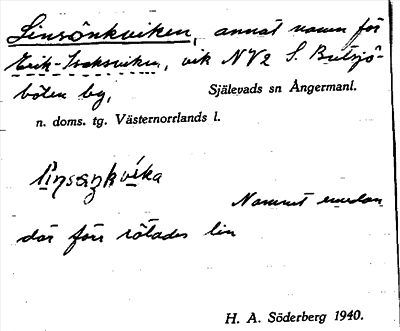 Linsönkviken, annat namn för
Erik-Isaksviken, vik NV2 S. Butsjö-
bölen by,
Själevads sn Ångermanl.
n. doms. tg. Västernorrlands l.
Namnet emedan
där förr rötades lin
H. A. Söderberg 1940.